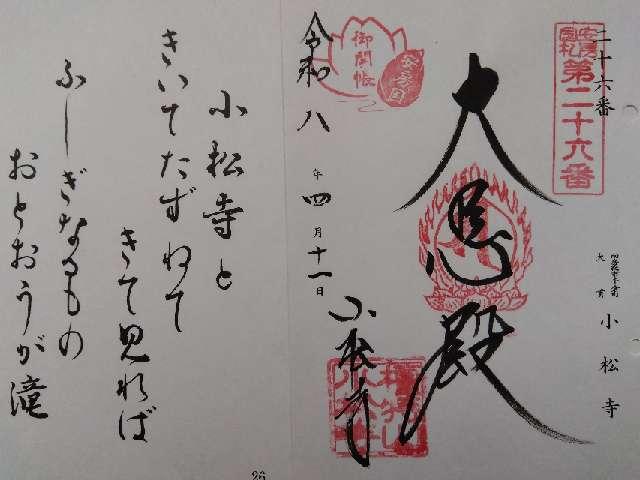 二十六番
安房国札
第二十六番
大貫 小松寺
大悲殿
御開帳
安房国
令和八年四月十一日
小松寺
小松寺と
きいてたずねて
きて見れば
ふしぎなるもの
おとおうが滝
26